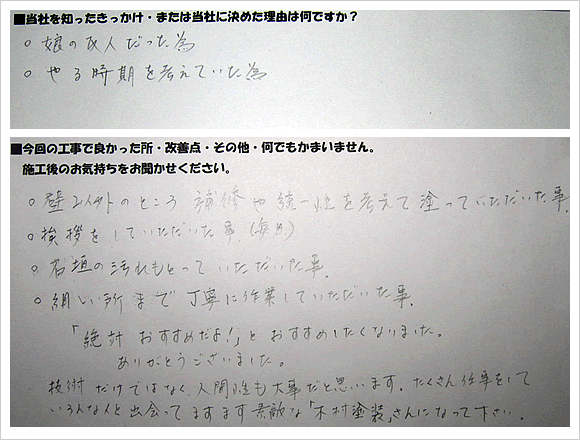 ■当社を知ったきっかけ・または当社に決めた理由は何ですか？
○ 娘の友人だった為
○ やる時期を考えていた為
■今回の工事で良かった所・改善点・その他・何でもかまいません。
施工後のお気持ちをお聞かせください。
○ 壁以外のところ 補修や統一性を考えて塗っていただいた事。
○ 挨拶をしていただいた事(毎日)
○ 石垣の汚れもとっていただいた事。
○ 細い所まで丁寧に作業していただいた事。
「絶対おすすめだよ！」とおすすめしたくなりました。
ありがとうございました。
技術だけではなく、人間性も大事だと思います。たくさん仕事をして
いろんな人と出会ってますます素敵な「木村塗装」さんになって下さい。